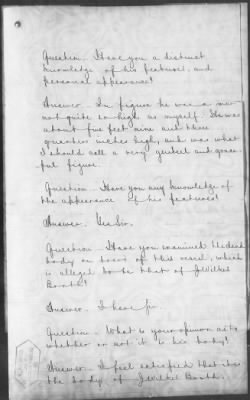 Question. Have you a distinct
knowledge of his features and
personal appearance?
Answer. In figure he was a man
not quite so high as myself. He was
about five feet nine and three
quarters inches high, and was what
I should call a very genteel and grace-
ful figure.
Question. Have you any knowledge of
the appearance of his features?
Answer. Yes Sir.
Question. Have you examined the dead
body on board of this vessel, which
is alleged to be that of J Wilkes
Booth?
Answer. I have Sir.
Question. What is your opinion as to
whether or not it is his body?
Answer. I feel satisfied that it is
the body of J Wilkes Booth.